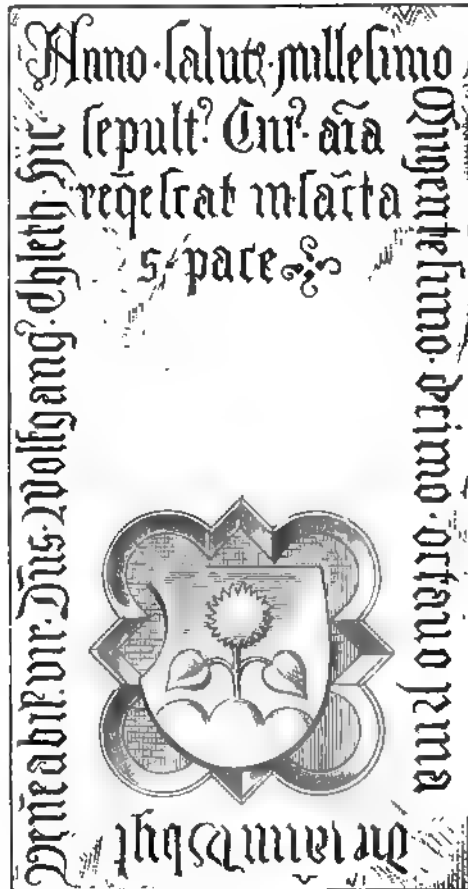 Anno · salut᷒ · millesimo
Quīgentesimo · decimo · octauo
die obyt
Veneabil᷒ · vir · Dn̄s · Wolfgang᷒ · Chleth · hic
sepult᷒ · Cui᷒ · aīa
reqescat in sācta
s · pace